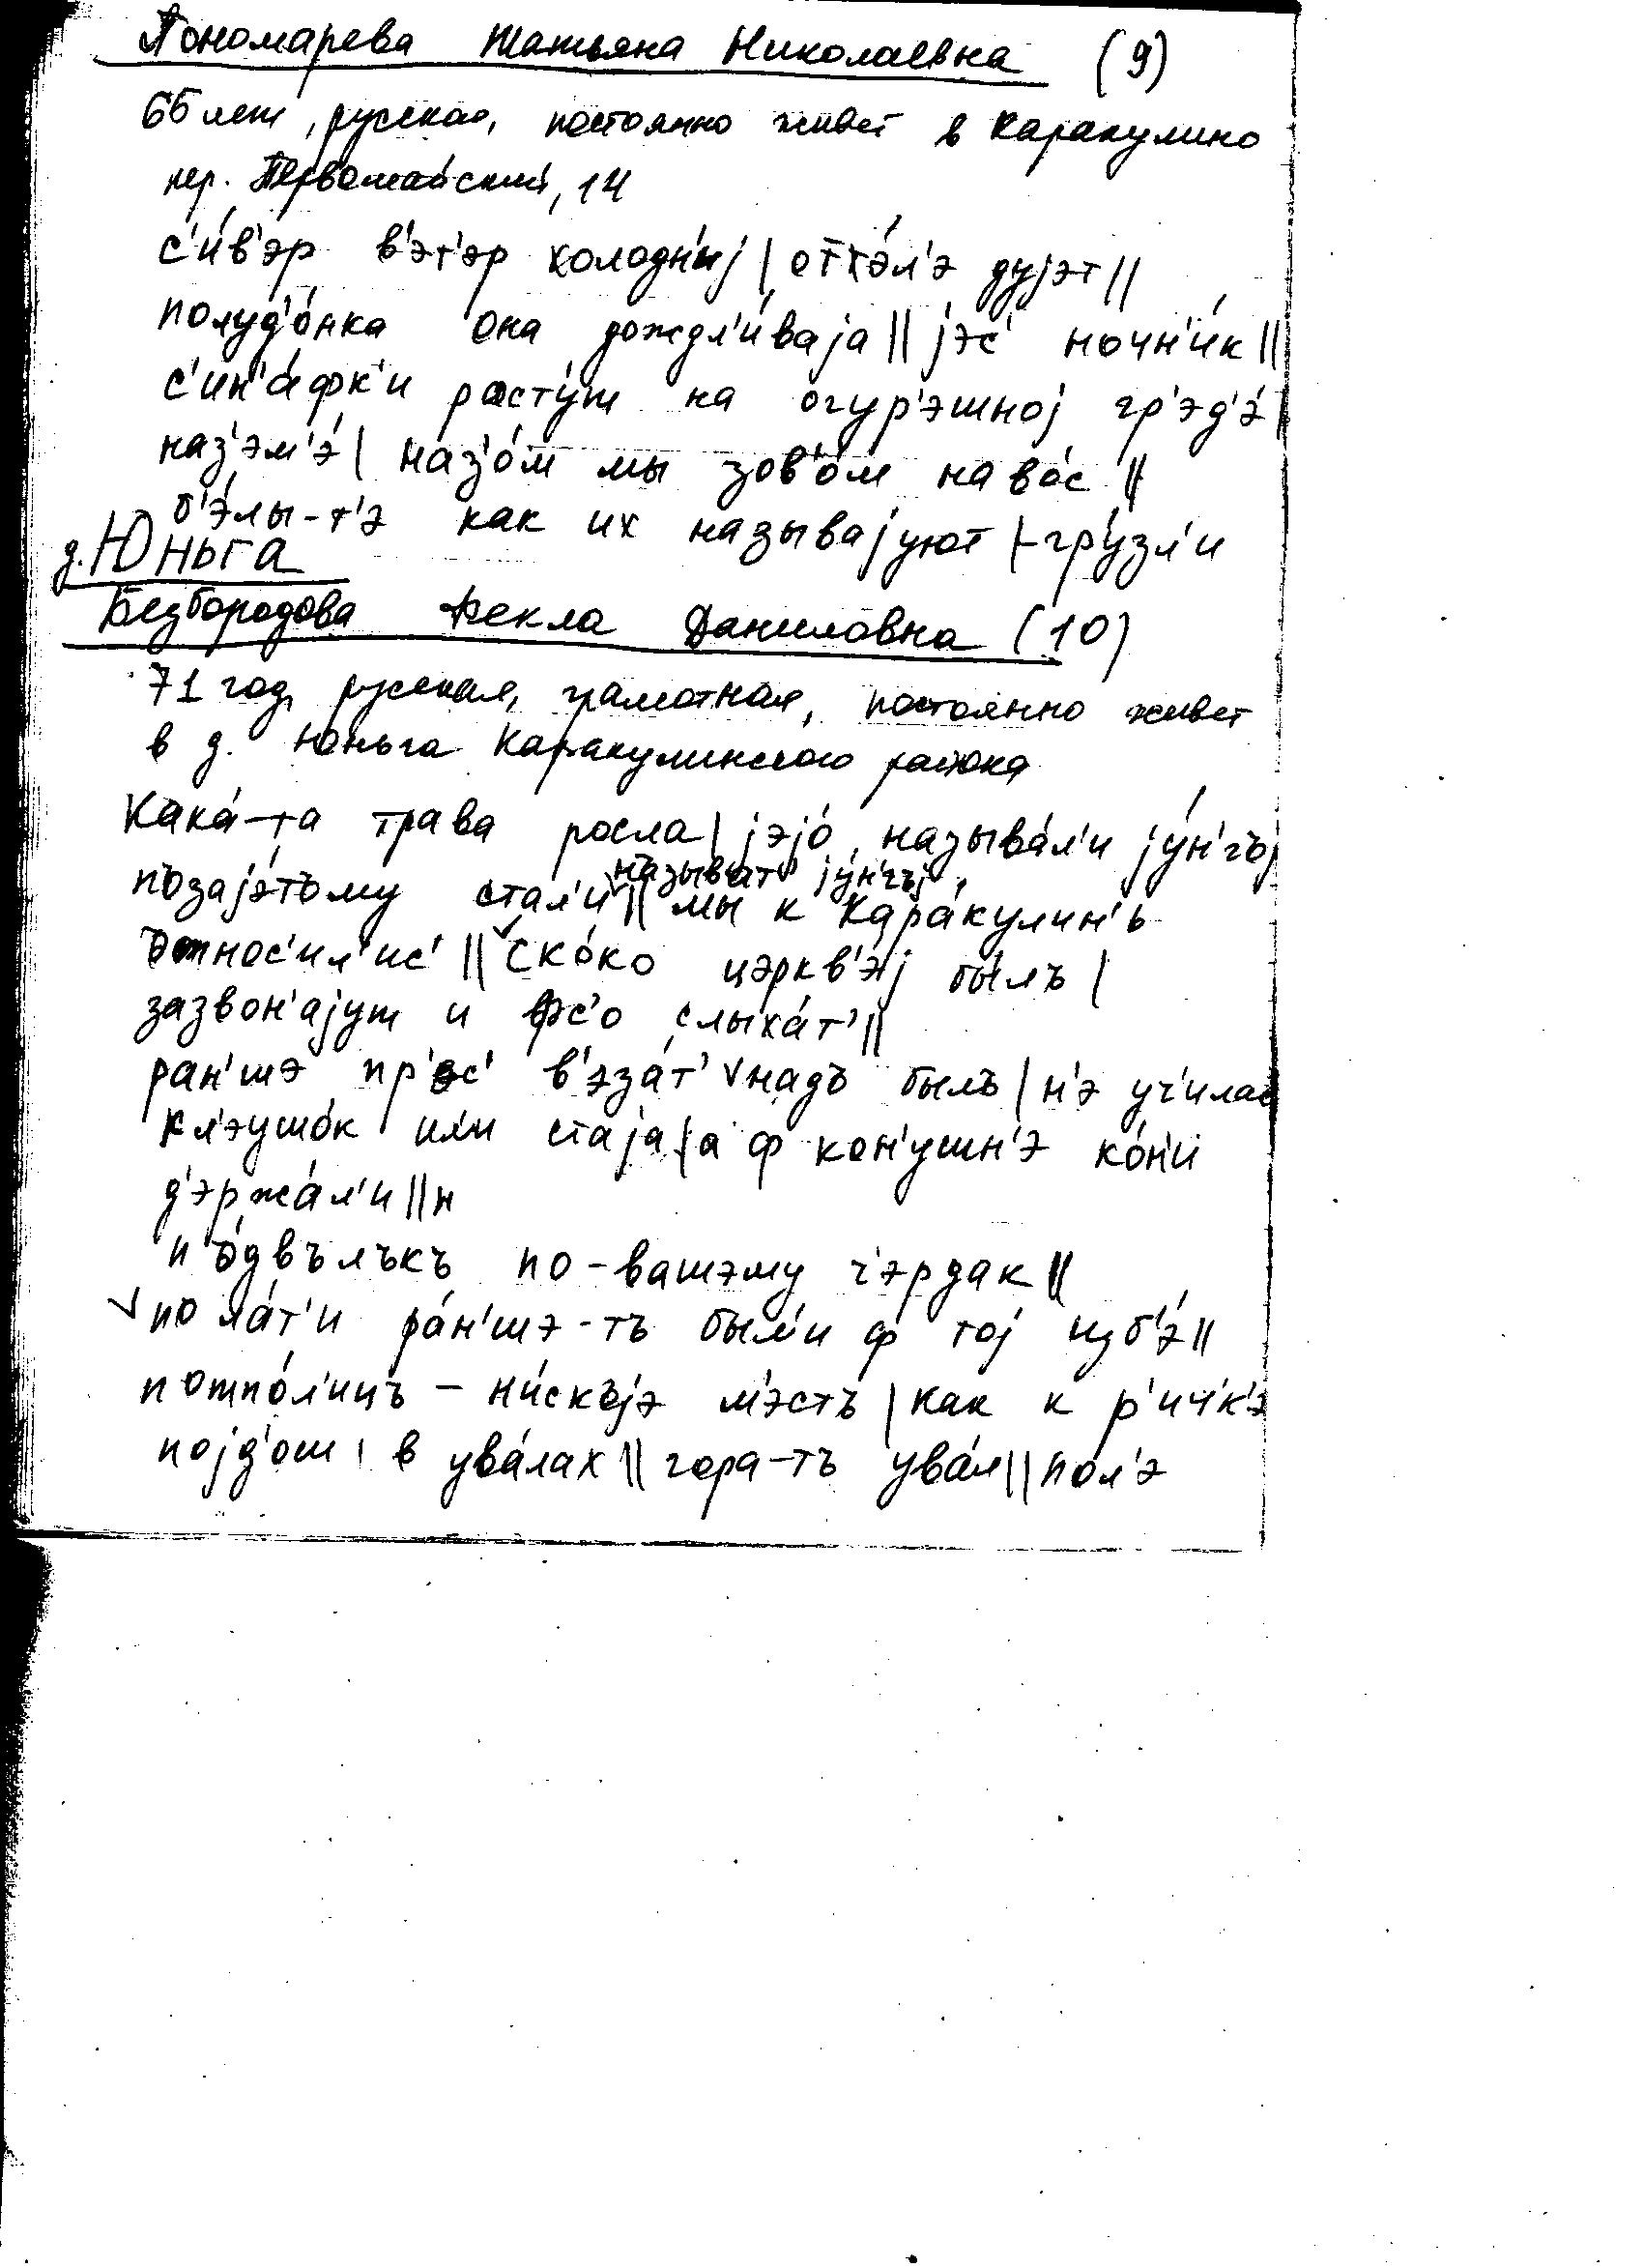 Пономарева Татьяна Николаевна (9)
65 лет, русская, постоянно живет в Каракулино
пер. Первомайский, 14
с'и́в'эр в'э́т'эр холодн'иj | оттэ́л'э дуjэт ||
полуд'о́нка она дождл'и́ваjа || jэс' ночн'и́к ||
с'ин'а́фк'и расту́т на огур'эшноj гр'эд'э́ |
наз'эм'э́ | наз'о́м мы зов'о́м наво́с ||
б'э́лы-т'э как их называjуют | - гру́зл'и
д. Юньга
Безбородова Фекла Даниловна (10)
71 год, русская, грамотная, постоянно живет
в д. Юньга Каракулинского района
Кака́-та трава росла | jэjо́ называ́л'и jу́н'гъj
пъзаjэ́тъму стал'и называт' jу́н'гъj || мы к Кара́кулин'ь
относ'ил'ис' || ско́ко цэркв'э́j бы́лъ |
зазвон'аjут и фс'о слыха́т' ||
ран'шэ пр'эс' в'эза́т' надъ былъ | н'э уч'илас
кл'эушо́к ил'и стаjа | а ф кон'ушн'э ко́н'и
д'эржа́л'и || н
по́двълъкъ по-вашэму ч'эрдак ||
пола́т'и ра́н'шэ-тъ был'и ф тоj изб'э́ ||
потпо́л'ицъ - ни́скъjэ м'эстъ | как к р'ич'к'э
поjд'ош | в ува́лах || гора-тъ ува́л || пол'э